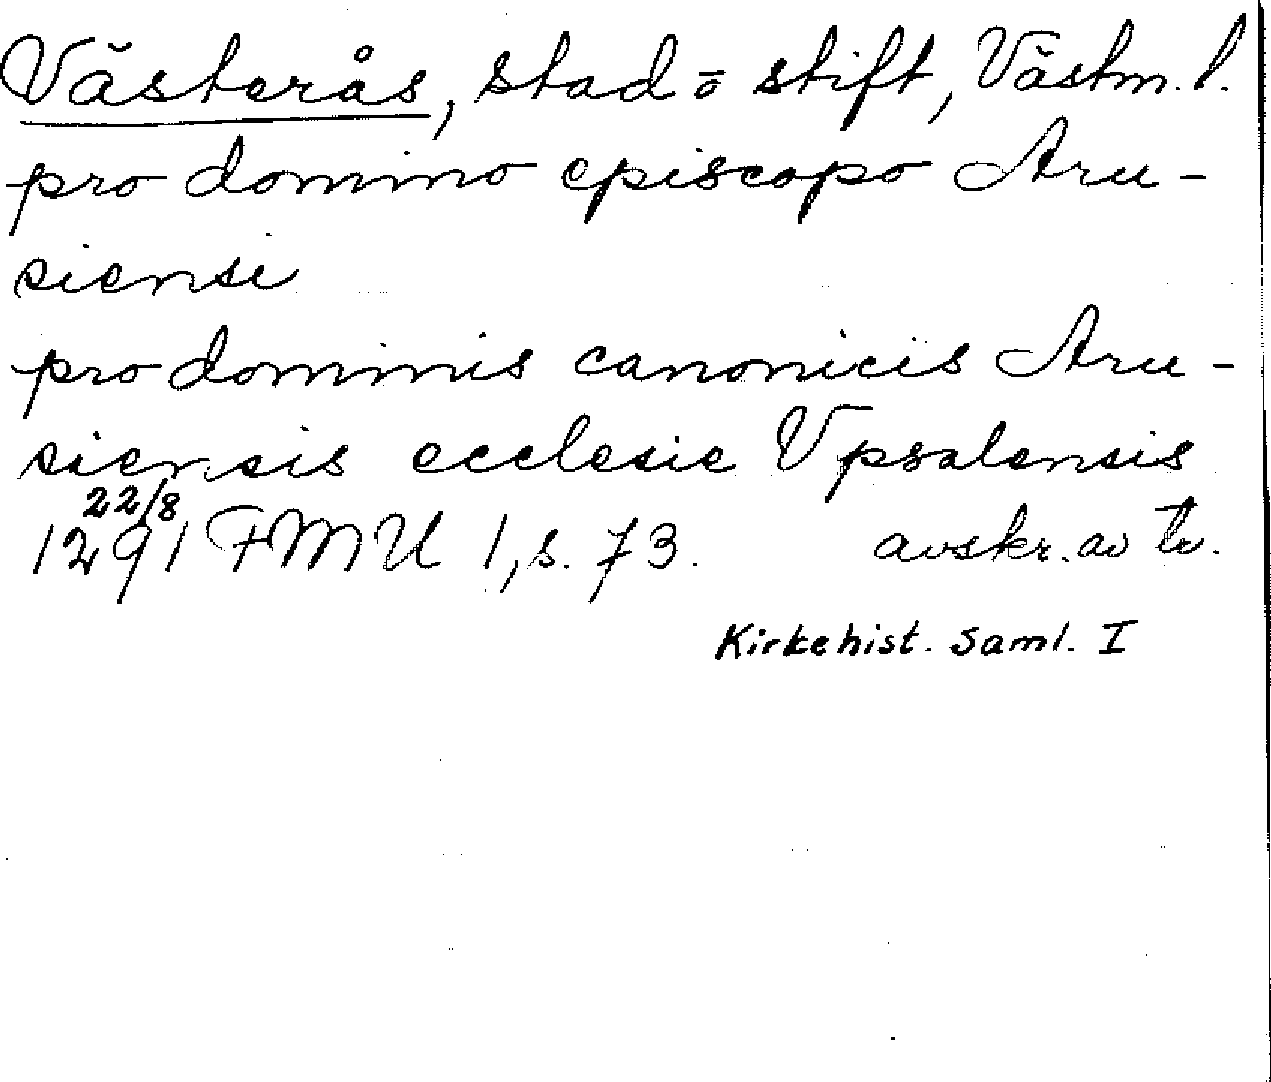 Västerås, stad o stift, Västm. l.
pro domino episcopo Aru-
siensi
pro dominis canonicis Aru-
siensis ecclesie Vpsalensis
22/8
1291 FMU 1, s. 73. avskr. av tr.
Kirkehist. Saml. I